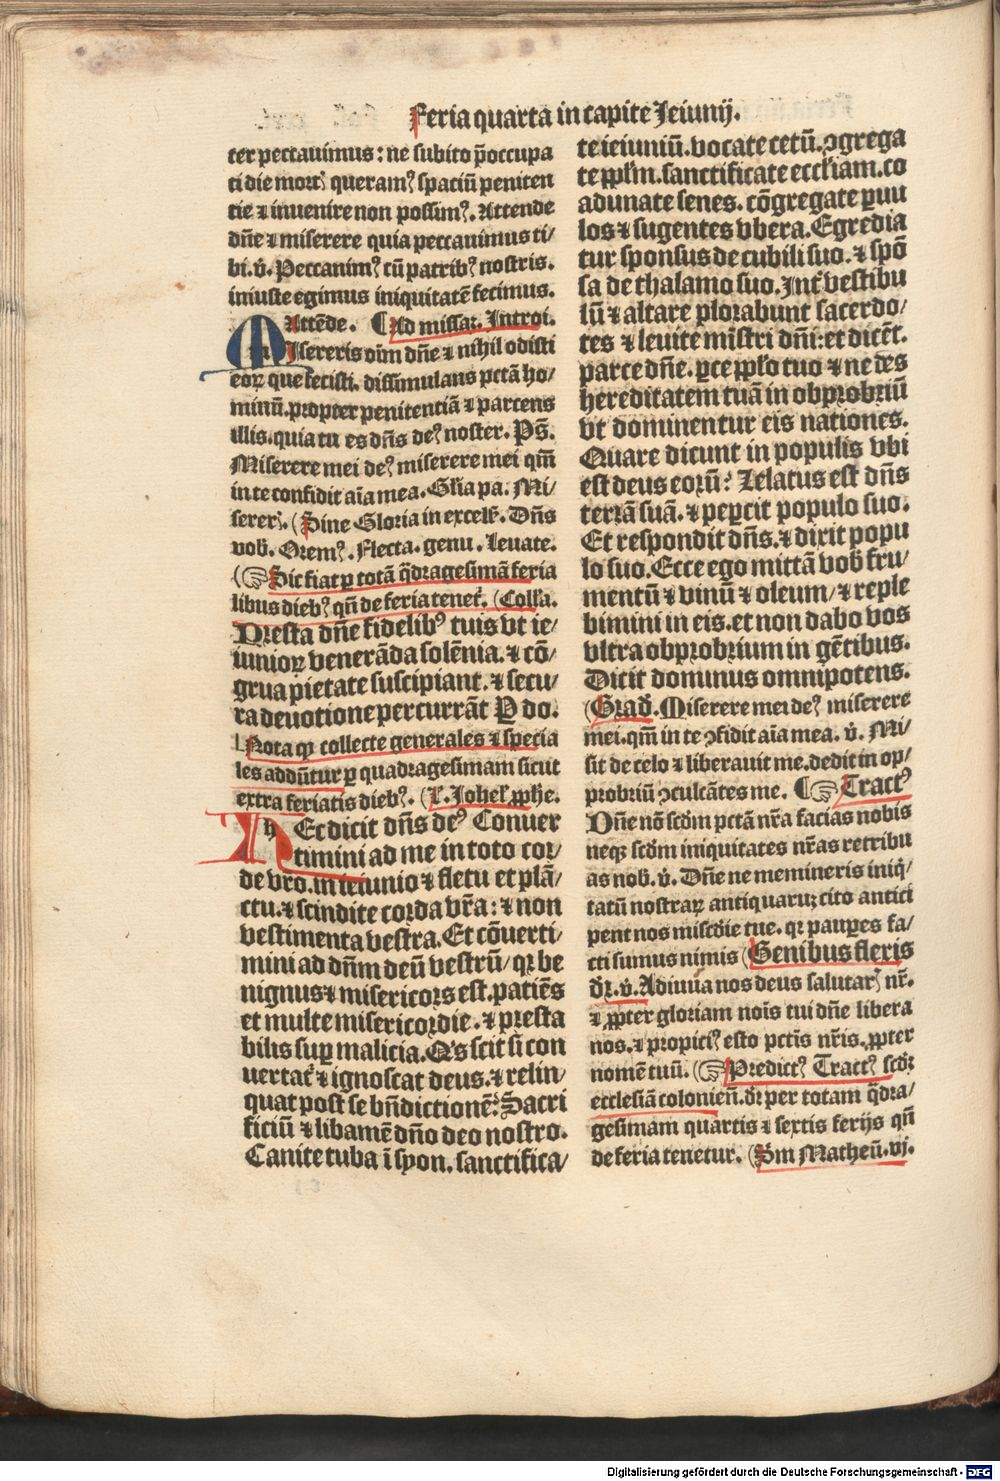 Feria quarta in capite Jeiunij.
ter peccauimus: ne subito p̄occupa
ti die mortꝭ queramꝰ spaciū peniten
tie ⁊ inuenire non possimꝰ. Attende
dn̄e ⁊ miserere quia peccauimus ti/
bi. v̄. Peccauimꝰ cū patribꝰ nostris.
iniuste egimus iniquitatē fecimus.
Attēde. ¶ Ad missaꝝ. Introi.
MIsereris oīm dn̄e ⁊ nihil odisti
eoꝝ que fecisti. dissimulans pctā ho/
minū. propter penitentiā ⁊ parcens
illis. quia tu es dn̄s deꝰ noster. Ps̄.
Miserere mei deꝰ miserere mei qm̄
in te confidit aīa mea. Gl'ia pa. Mi/
serer̄. (Sine Gloria in excels̄. Dn̄s
vob̄. Oremꝰ. Flecta. genu. Leuate.
(☞ Sic fiat ꝑ totā q̄dragesimā feria
libus diebꝰ qn̄ de feria tenet̄. (Coll'a.
Presta dn̄e fidelibꝰ tuis vt ie/
iunioꝝ venerāda solēnia. ⁊ cō/
grua pietate suscipiant. ⁊ secu/
ra deuotione percurrāt P do.
Nota ꝙ collecte generales ⁊ specia
les addūtur ꝑ quadragesimam sicut
extra feriatis diebꝰ. (L̄. Johel' ꝓphe.
HEc dicit dn̄s deꝰ Conuer
timini ad me in toto cor/
de vr̄o. in ieiunio ⁊ fletu et plā/
ctu. ⁊ scindite corda vr̄a: ⁊ non
vestimenta vestra. Et cōuerti/
mini ad dn̄m deū vestrū/ qꝛ be
nignus ⁊ misericors est. patiēs
et multe misericordie. ⁊ presta
bilis suꝑ malicia. Q's scit si con
uertat̄ ⁊ ignoscat deus. ⁊ relin/
quat post se bn̄dictionē? Sacri
ficiū ⁊ libamē dn̄o deo nostro.
Canite tuba ī syon. sanctifica/
te ieiuniū. vocate cetū. ꝯgrega
te ppl'm. sanctificate eccl'iam. co
adunate senes. cōgregate ꝑuu
los ⁊ sugentes vbera. Egredia
tur sponsus de cubili suo. ⁊ spō
sa de thalamo suo. Int̄ vestibu
lū ⁊ altare plorabunt sacerdo/
tes ⁊ leuite mīstri dn̄i: et dicēt.
parce dn̄e. ꝑce ppl'o tuo ⁊ ne des
hereditatem tuā in obprobriū
vt dominentur eis nationes.
Quare dicunt in populis vbi
est deus eorū? Zelatus est dn̄s
terrā suā. ⁊ peꝑcit populo suo.
Et respondit dn̄s. ⁊ dixit popu
lo suo. Ecce ego mittā vob̄ fru/
mentū ⁊ vinū ⁊ oleum/ ⁊ reple
bimini in eis. et non dabo vos
vltra obprobrium in gētibus.
Dicit dominus omnipotens.
(Grad̄. Miserere mei deꝰ miserere
mei. qm̄ in te ꝯfidit aīa mea. v̄. Mi/
sit de celo ⁊ liberauit me. dedit in op/
probriū ꝯculcātes me. ¶ ☞ Tractꝰ
Dn̄e nō scd̄m pctā nr̄a facias nobis
neqꝫ scd̄m iniquitates nr̄as retribu
as nob̄. v̄. Dn̄e ne memineris iniq̄/
tatū nostraꝝ antiquaruꝫ cito antici
pent nos miscd̄ie tue. qꝛ pauꝑes fa/
cti sumus nimis (Genibus flexis
dr̄. v̄. Adiuua nos deus salutarꝭ nr̄.
⁊ ꝓpter gloriam noīs tui dn̄e libera
nos. ⁊ propiciꝰ esto pctīs nr̄is. ꝓpter
nomē tuū. (☞ Predictꝰ Tractꝰ scd̄ꝫ
ecclesiā colonien̄. dr̄ per totam q̄dra/
gesimam quartis ⁊ sextis ferijs qn̄
de feria tenetur. (Sm Matheū. vj.
Digitalisierung gefördert durch die Deutsche Forschungsgemeinschaft - DFG